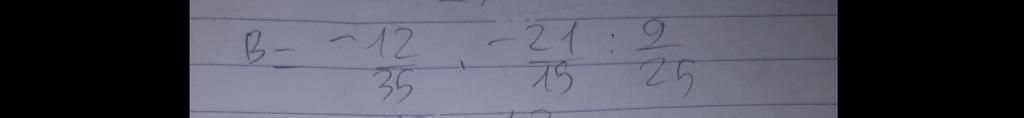 B = -12/35 . -21/15 : 9/25